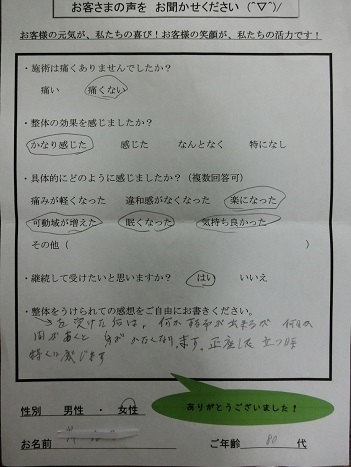 お客さまの声を お聞かせください (^▽^)/
お客様の元気が、私たちの喜び！お客様の笑顔が、私たちの活力です！
・施術は痛くありませんでしたか？
痛い 痛くない
・整体の効果を感じましたか？
かなり感じた 感じた なんとなく 特になし
・具体的にどのように感じましたか？（複数回答可）
痛みが軽くなった 違和感がなくなった 楽になった
可動域が増えた 眠くなった 気持ち良かった
その他（ ）
・継続して受けたいと思いますか？ はい いいえ
・整体をうけられての感想をご自由にお書きください。
を受けた後は、何か
間があくと 身がかたくなります。正座した立つ時
特に感じます
ありがとうございました！
性別 男性 ・ 女性
お名前 ご年齢 80 代